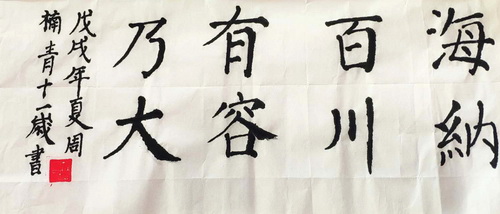 海納
百川
有容
乃大
戊戌年夏周
楠青十一歲書